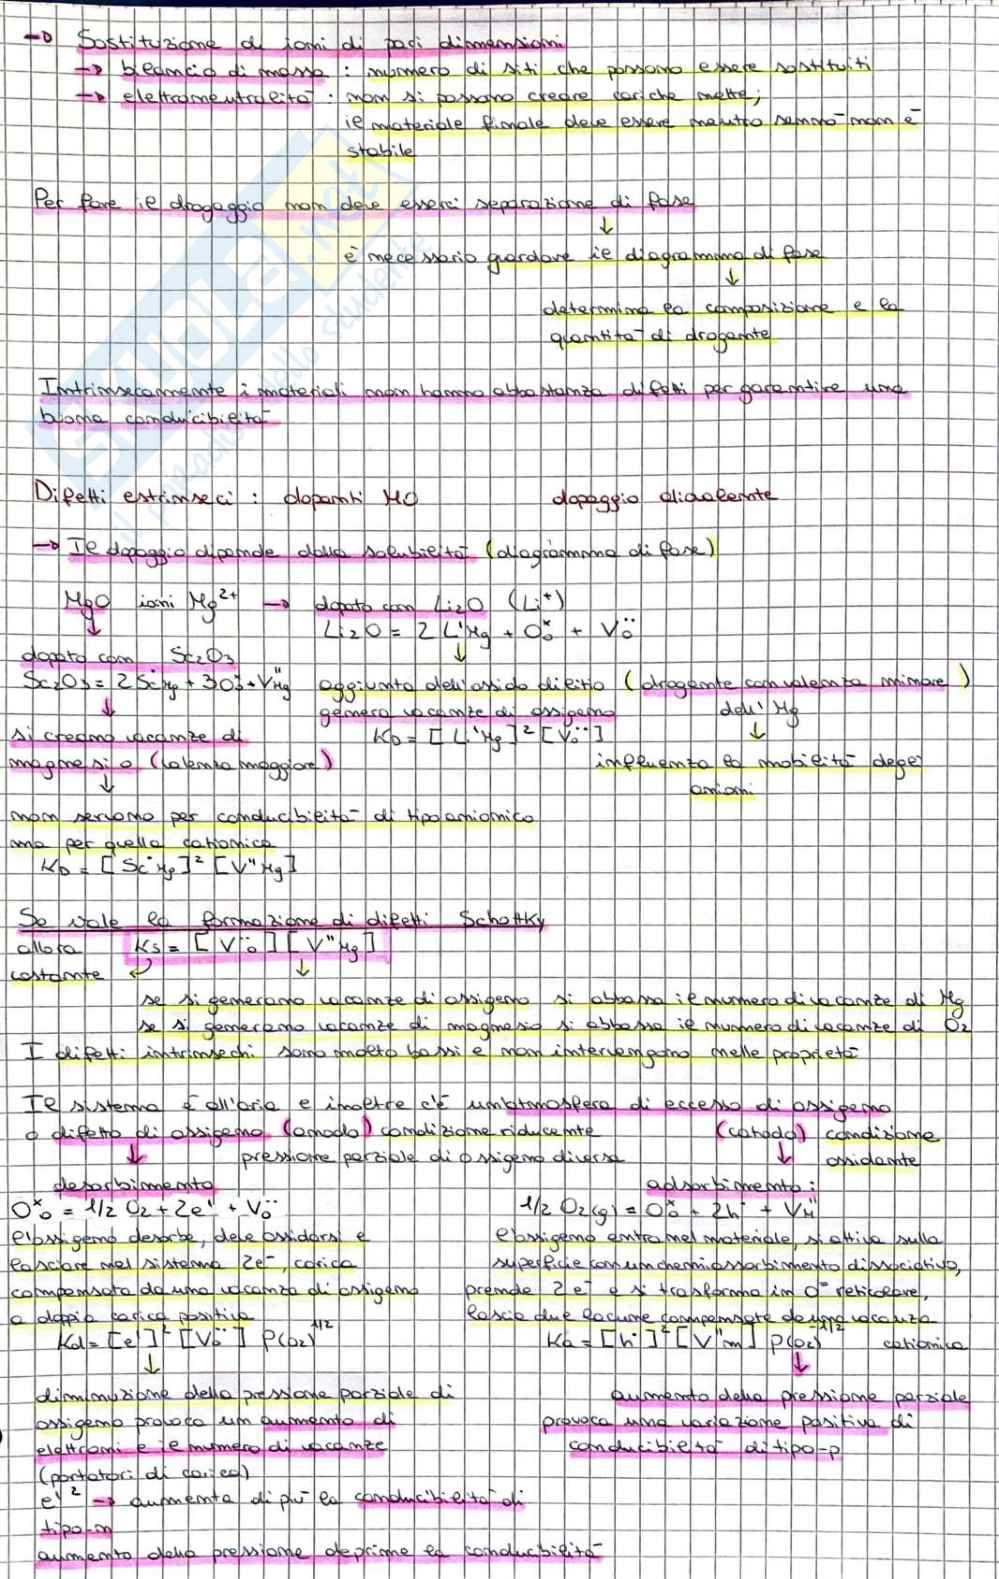 → Sostituzione di ioni di pari dimensioni
→ bilancio di massa : numero di siti che possono essere sostituiti
→ elettroneutralità : non si possono creare cariche nette;
il materiale finale deve essere neutro sennò non è
stabile
Per fare il drogaggio non deve esserci separazione di fase
↓
è necessario guardare il diagramma di fase
↓
determina la composizione e la
quantità di drogante
Intrinsecamente i materiali non hanno abbastanza difetti per garantire una
buona conducibilità
Difetti estrinseci : dopanti MO dopaggio aliovalente
→ Il dopaggio dipende dalla solubilità (diagramma di fase)
MgO ioni Mg²⁺ → dopato con Li₂O (Li⁺)
↓ Li₂O = 2 Li'Mg + Oₒˣ + Vₒ¨
dopato con Sc₂O₃ ↓
Sc₂O₃ = 2Sc˙Mg + 3Oₒˣ + V''Mg aggiunta dell'ossido di litio (drogante con valenza minore)
↓ genera vacanze di ossigeno dell' Mg
si creano vacanze di K_D = [Li'Mg]² [Vₒ¨] ↓
magnesio (valenza maggiore) influenza la mobilità degli
↓ anioni
non servono per conducibilità di tipo anionico
ma per quella cationica
K_D = [Sc˙Mg]² [V''Mg]
Se vale la formazione di difetti Schottky
allora Ks = [Vₒ¨] [V''Mg]
costante ↓
se si generano vacanze di ossigeno si abbassa il numero di vacanze di Mg
se si generano vacanze di magnesio si abbassa il numero di vacanze di O₂
I difetti intrinsechi sono molto bassi e non intervengono nelle proprietà
Il sistema è all'aria e inoltre c'è un'atmosfera di eccesso di ossigeno
o difetto di ossigeno (anodo) condizione riducente (catodo) condizione
↓ pressione parziale di ossigeno diversa ↓ ossidante
desorbimento adsorbimento:
Oₒˣ = 1/2 O₂ + 2e' + Vₒ¨ 1/2 O₂(g) = Oₒˣ + 2h˙ + V''M
l'ossigeno desorbe, deve ossidarsi e l'ossigeno entra nel materiale, si attiva sulla
lasciare nel sistema 2e⁻, carica superficie con un chemiassorbimento dissociativo,
compensata da una vacanza di ossigeno prende 2e⁻ e si trasforma in O⁼ reticolare,
a doppia carica positiva lascia due lacune compensate da una vacanza
Kd = [e']² [Vₒ¨] P(O₂)^1/2 Ka = [h˙]² [V''m] P(O₂)^-1/2 cationica
↓ ↓
diminuzione della pressione parziale di aumento della pressione parziale
ossigeno provoca un aumento di provoca una variazione positiva di
elettroni e il numero di vacanze conducibilità di tipo-p
(portatori di carica)
e'² → aumenta di più la conducibilità di
tipo-n
aumento della pressione deprime la conducibilità